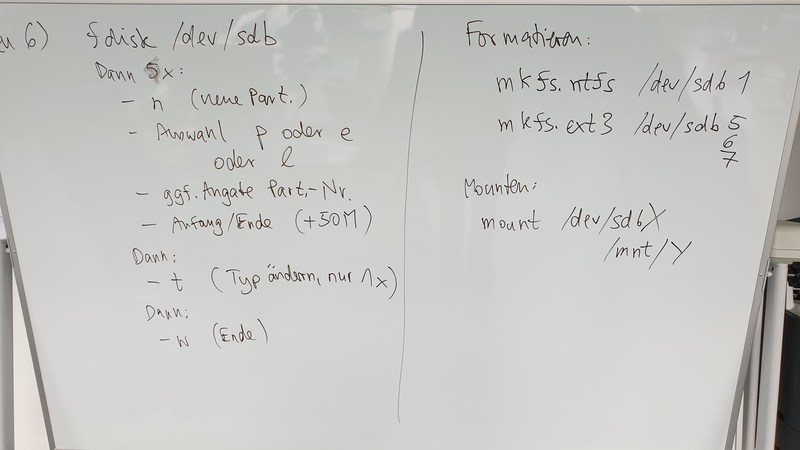 zu 6) fdisk /dev/sdb
Dann 5x:
- n (neue Part.)
- Auswahl p oder e
oder l
- ggf. Angabe Part.-Nr.
- Anfang/Ende (+50M)
Dann:
- t (Typ ändern, nur 1x)
Dann:
- w (Ende)
Formatieren:
mkfs.ntfs /dev/sdb 1
mkfs.ext3 /dev/sdb 5
6
7
Mounten:
mount /dev/sdbX
/mnt/Y